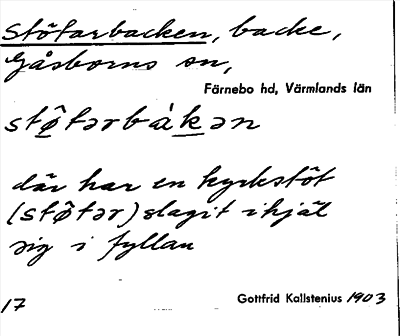 Stötarbacken, backe,
Gåsborns sn,
Färnebo hd, Värmlands län
stø̂tərbàkən
där har en kyrkstöt
(stø̂tər) slagit ihjäl
sig i fyllan
17 Gottfrid Kallstenius 1903